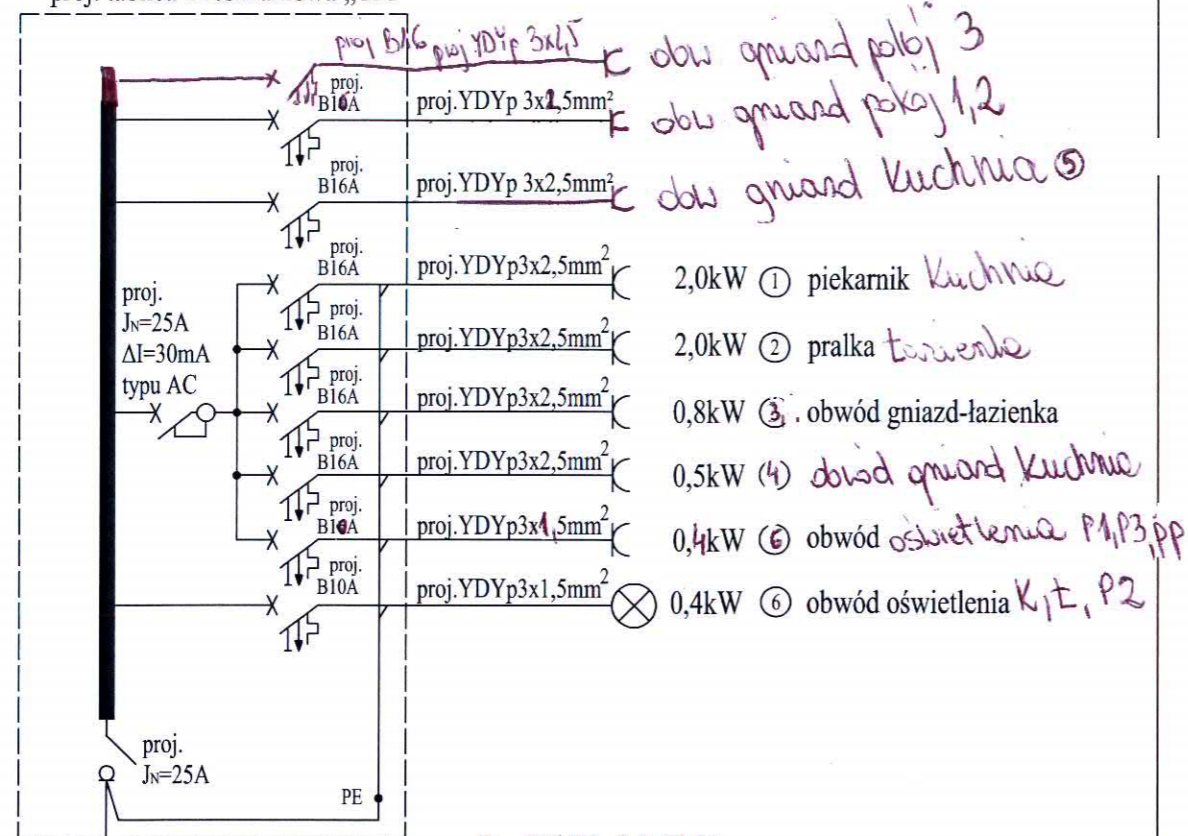 proj B16 proj YDYp 3x2,5 obw gniazd pokój 3
proj.
B16A proj.YDYp 3x2,5mm² obw gniazd pokój 1,2
proj.
B16A proj.YDYp 3x2,5mm² obw gniazd Kuchnia ⑤
proj.
B16A proj.YDYp3x2,5mm² 2,0kW ① piekarnik Kuchnia
proj.
B16A proj.YDYp3x2,5mm² 2,0kW ② pralka Łazienka
proj.
B16A proj.YDYp3x2,5mm² 0,8kW ③. obwód gniazd-łazienka
proj.
B16A proj.YDYp3x2,5mm² 0,5kW (4) obwód gniazd Kuchnia
proj.
proj.YDYp3x1,5mm² 0,4kW ⑥ obwód oświetlenia P1,P3,pp
proj.
B10A proj.YDYp3x1,5mm² 0,4kW ⑥ obwód oświetlenia K, Ł, P2
proj.
JN=25A
ΔI=30mA
typu AC
proj.
JN=25A
PE